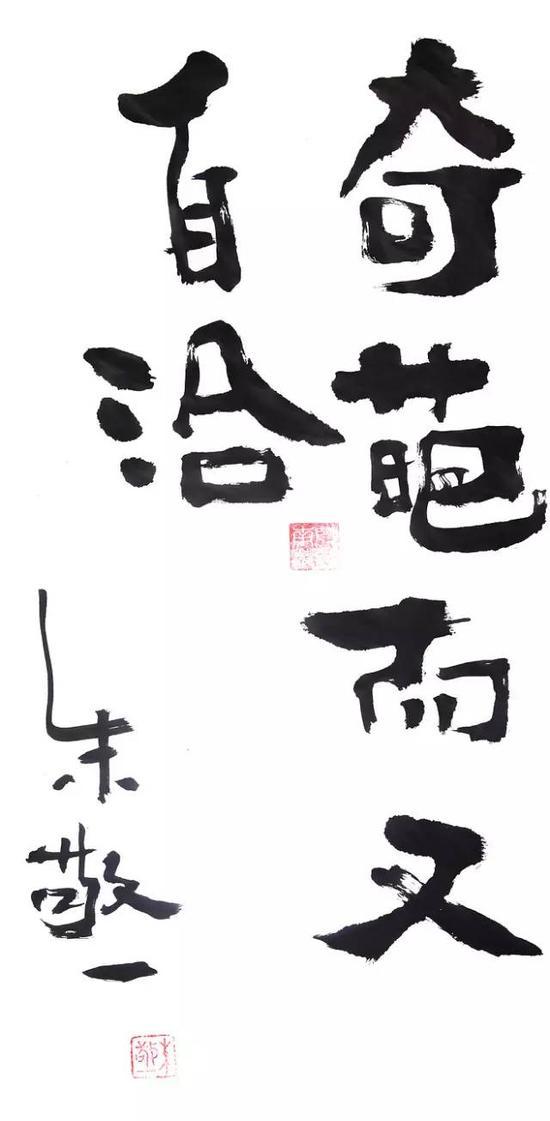 奇葩而又
自洽
朱敬一